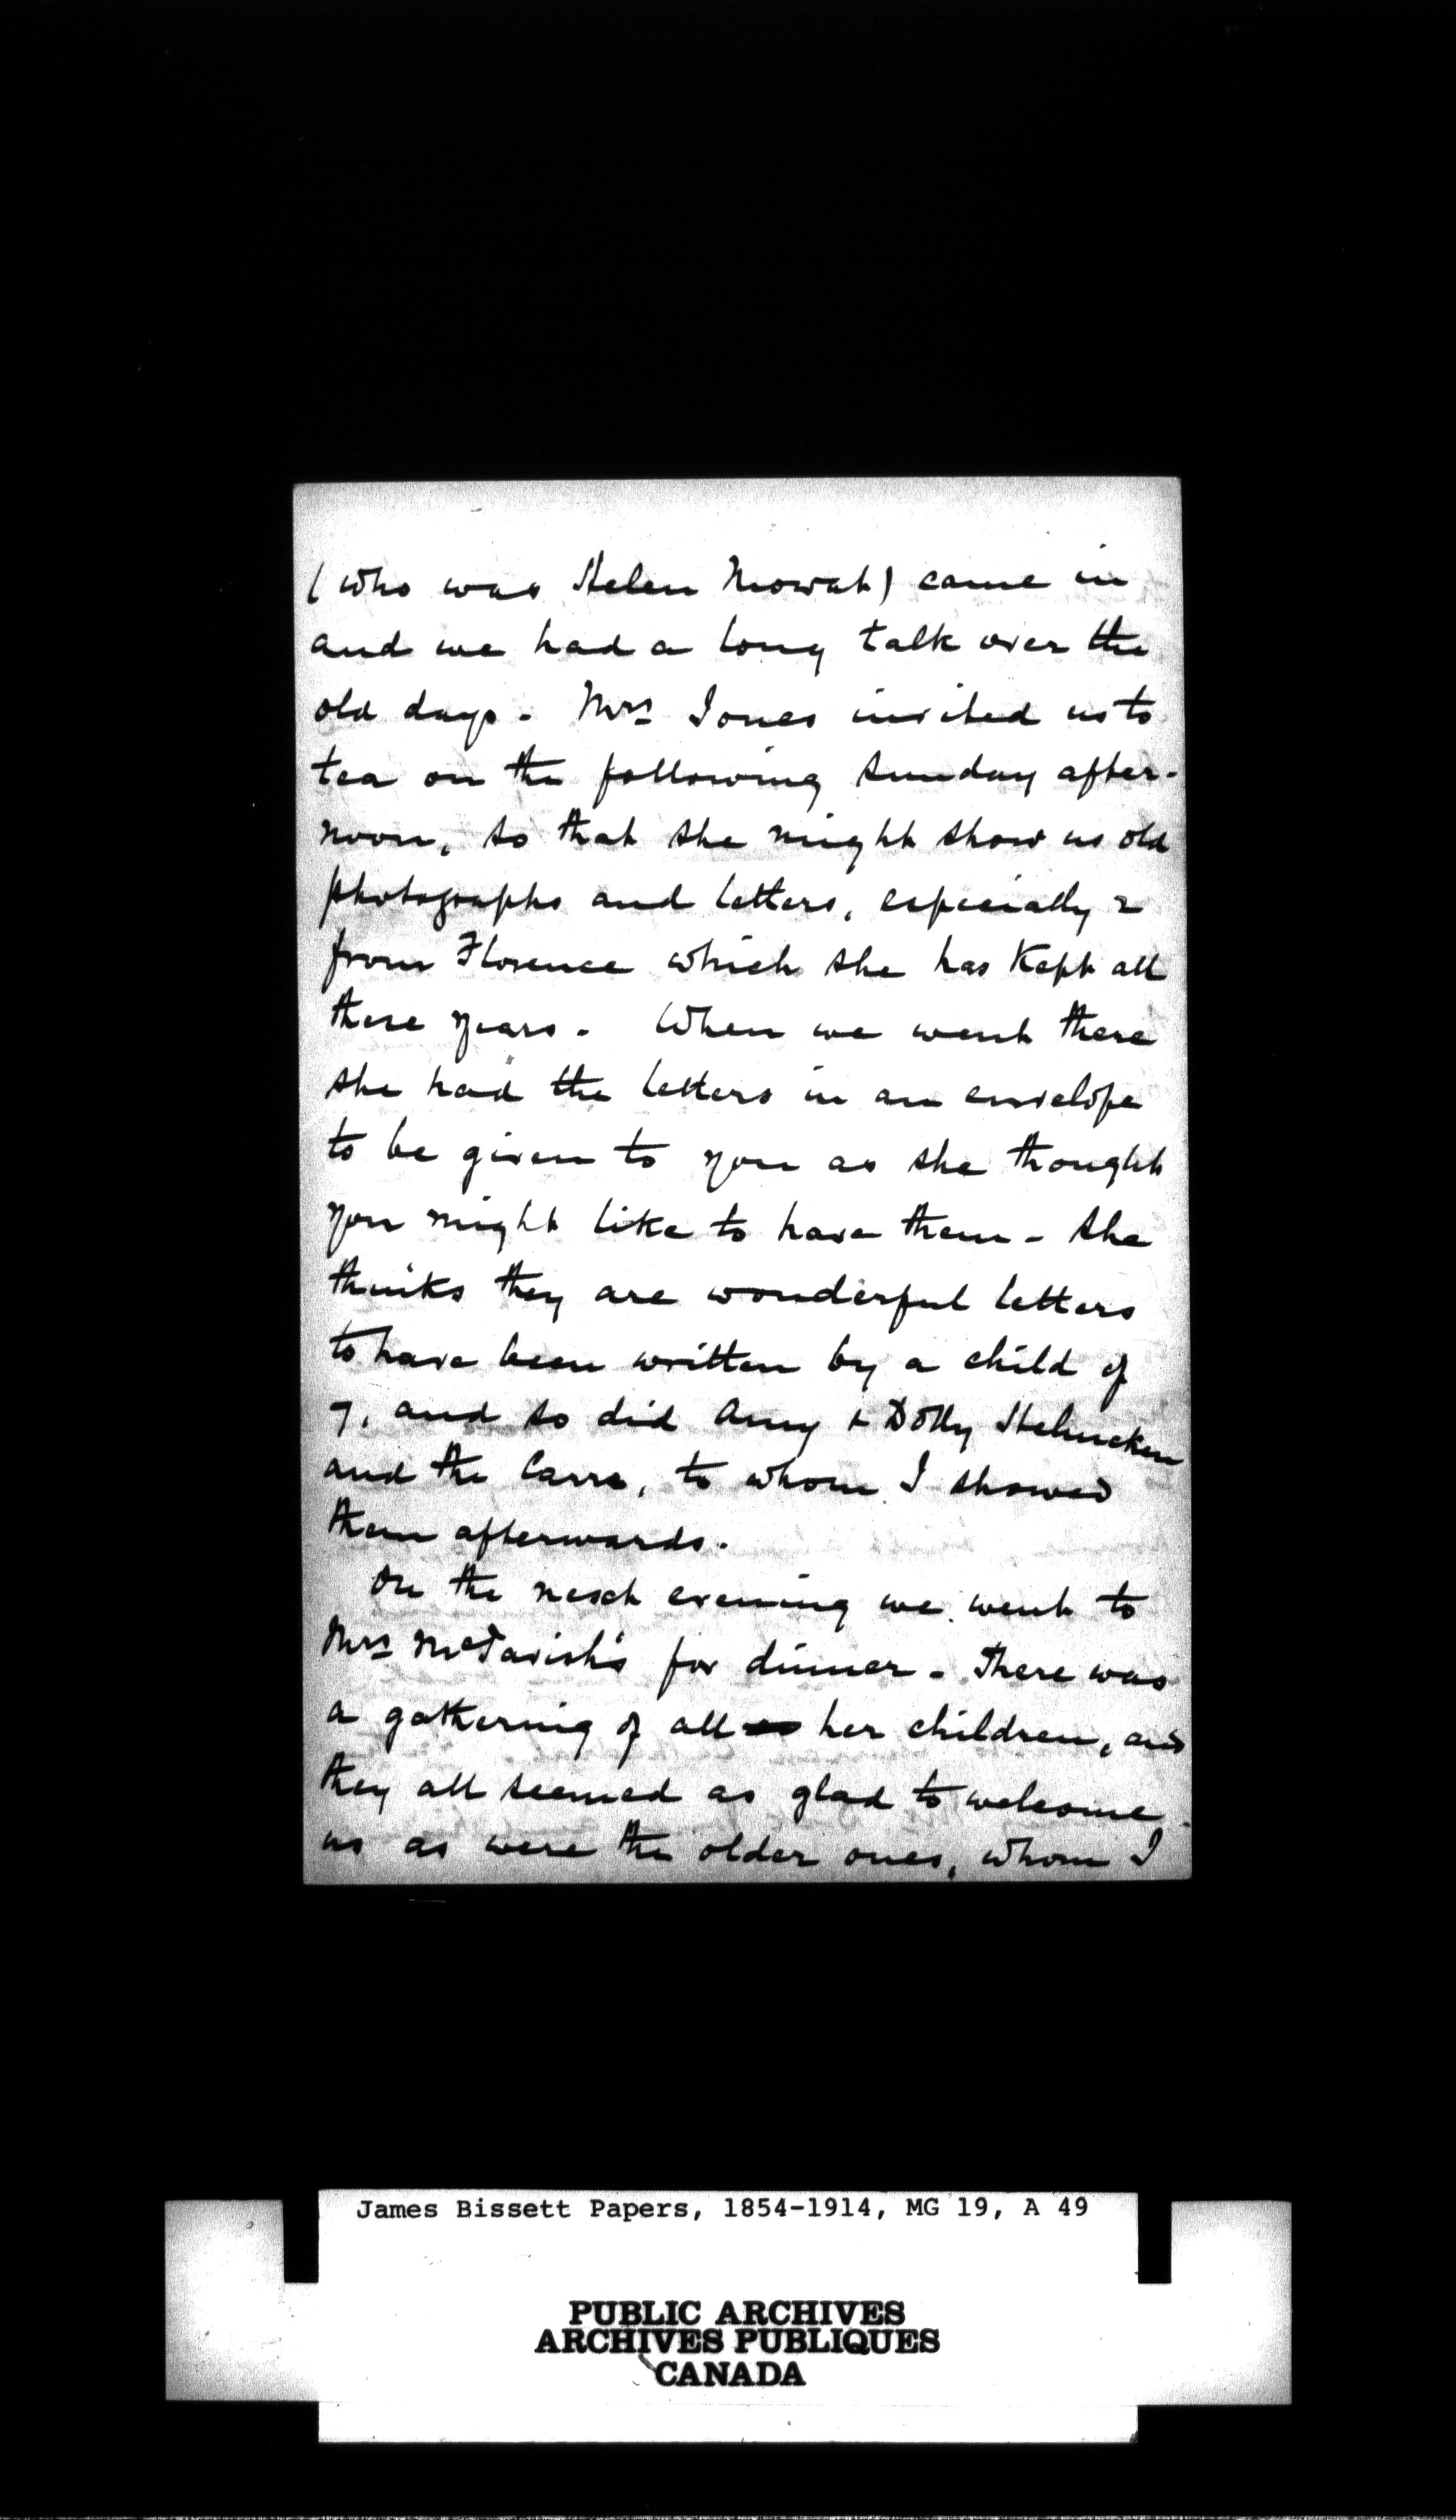 (who was Helen Mowat) came in
and we had a long talk over the
old days. Mrs Jones invited us to
tea on the following Sunday after-
noon, so that she might show us old
photographs and letters, especially 2
from Florence which she has kept all
these years. When we went there
she had the letters in an envelope
to be given to you as she thought
you might like to have them - She
thinks they are wonderful letters
to have been written by a child of
7, and so did Amy & Dolly Helmcken
and the Carrs, to whom I showed
them afterwards.
On the next evening we went to
Mrs McTavish's for dinner - There was
a gathering of all her children, and
they all seemed as glad to welcome
us as were the older ones, whom I
James Bissett Papers, 1854-1914, MG 19, A 49
PUBLIC ARCHIVES
ARCHIVES PUBLIQUES
CANADA